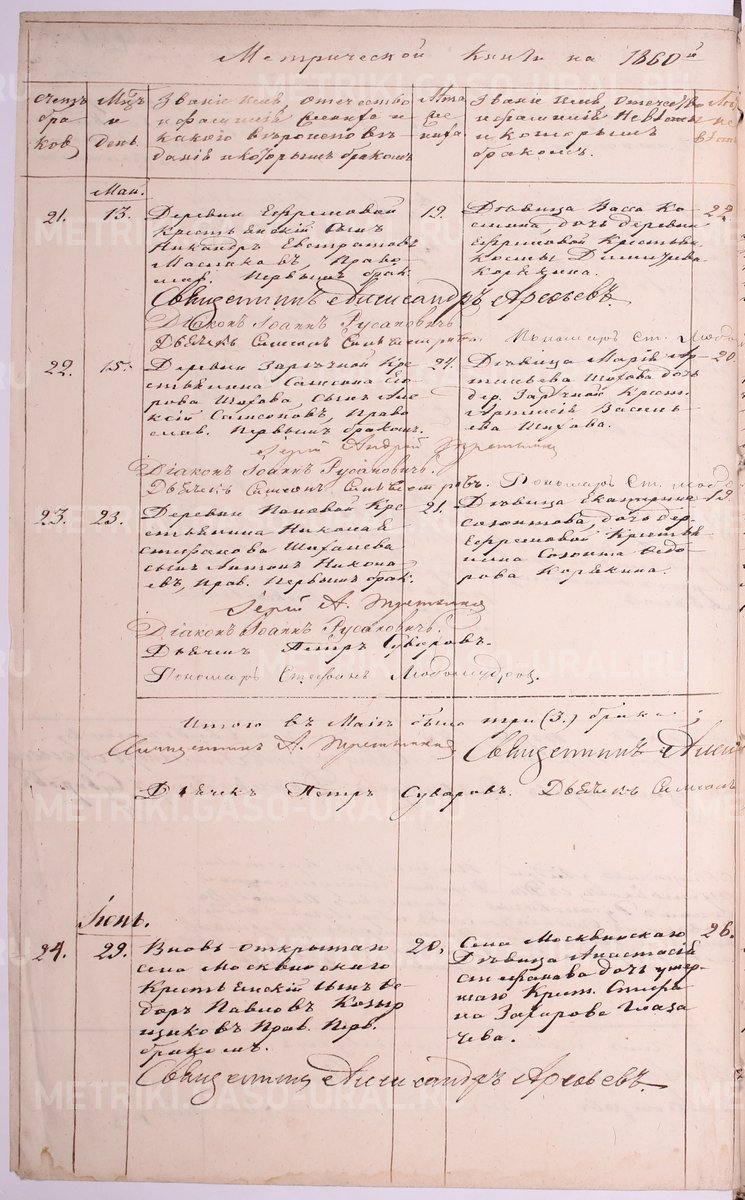 Метрической книги на 1860й
счетъ бра ков
Мцъ и день.
Званіе имя, отечество и фамилія жениха и какого вероисповѣданія и которымъ бракомъ
Лѣта жениха.
Званіе имя, отечество и фамилія невѣсты и которымъ бракомъ.
Маи.
21.
13.
Деревни Ефремовой
Крестьянскій сынъ
Никандръ Евстратовъ
Право
слав. Первымъ брак.
19.
Дѣвица Васса Ко-
сьмина, дочь деревни
Ефремовой Крестьян.
Косьмы Димитріева
Корякина.
22.
Священникъ Александръ
Діаконъ Іоаннъ Русановичъ
Дьячекъ Симеонъ Пономарь Ст. Любо
22.
15.
Деревни Зарѣчной Кре-
стьянина Самсона Его-
рова Шихова, сынъ Але-
ксій Самсоновъ, Право
слав. Первымъ бракомъ.
24.
Дѣвица Марія Ар-
темьева Шихова дочь
дер. Зарѣчной Крест.
Артемія Василь-
ева Шихова.
20.
Іерей Андрей
Діаконъ Іоаннъ Русановичъ.
Дьячекъ Симеонъ Пономарь Ст. Любо
23.
23.
Деревни Пановой Кре-
стьянина Николая
Стефанова
сынъ Антонъ Никола-
евъ, Прав. Первымъ брак.
21.
Дѣвица Екатерина
Созонтова, дочь дер.
Ефремовой Крестья-
нина Созонта Ѳедо-
рова Корякина.
19.
Іерей А.
Діаконъ Іоаннъ Русановичъ.
Дьячекъ Петръ Суваровъ.
Пономарь Стефанъ Любомудровъ.
Итого въ Маіи было три (3.) брака
Священникъ А. Священникъ Алекс
Дьячекъ Петръ Суваровъ. Дьячекъ Симеонъ
Іюнь.
24.
29.
Вновь-открытаго
села Москвинскаго
Крестьянскій сынъ Ѳе-
доръ Павловъ Козыр
щиковъ Прав. Перв.
бракомъ.
20.
Села Москвинскаго
Дѣвица Анастасія
Стефанова дочь умер-
шаго Крест. Стефа
на Захарова Глаза
чева.
26.
Священникъ Александръ
METRIKI.GASO-URAL.RU